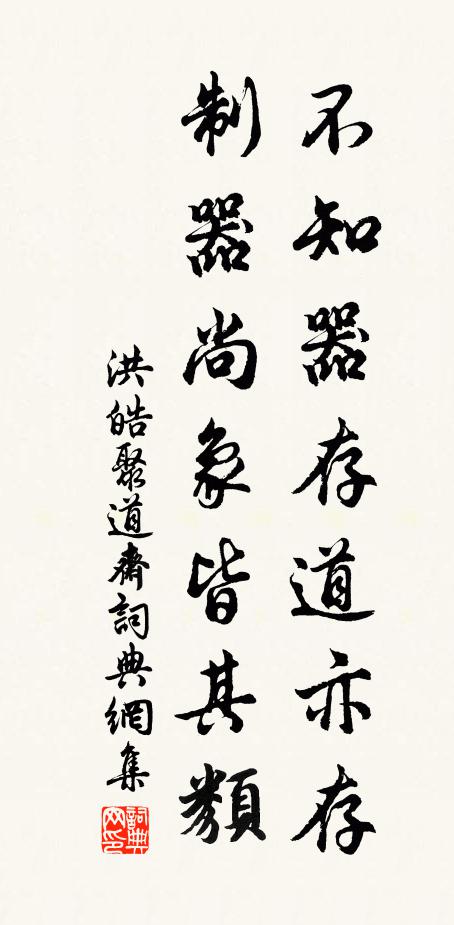 不知器存道亦存
制器尚象皆其類
洪皓聚道齋詞典網集
詞典网印